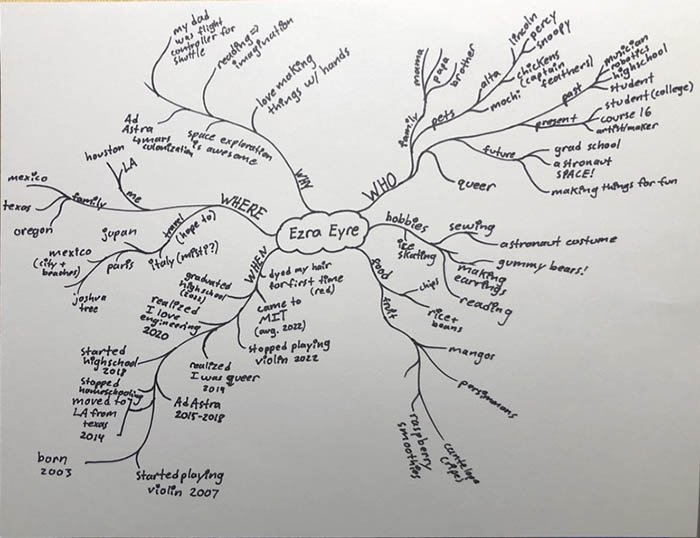 my dad
was flight
controller for
shuttle
reading⇒
imagination
love making
things w/ hands
Ad
Astra
↳mars
colonization
space exploration
is awesome
WHY
WHO
family
mama
papa
brother
pets
alta
lincoln
percy
snoopy
chickens
(captain
feathers)
mochi
past
musician
robotics
highschool
student
present
student (college)
course 16
artist/maker
future
grad school
astronaut
SPACE!
making things for fun
queer
Ezra Eyre
WHERE
me
houston
LA
family
mexico
texas
oregon
travel
(hope to)
japan
mexico
(city +
beaches)
paris
italy (misti?)
joshua
tree
hobbies
sewing
astronaut costume
gummy bears!
making
earrings
reading
ice
skating
food
chips
rice+
beans
fruit
mangos
persimmons
cantelope
(ripe)
raspberry
smoothies
WHEN
dyed my hair
for first time
(red)
graduated
highschool
(2022)
came to
MIT
(aug. 2022)
realized
I love
engineering
2020
stopped playing
violin 2022
started
highschool
2018
realized
I was queer
2019
stopped
homeschooling
moved to
LA from
texas
2014
Ad Astra
2015-2018
born
2003
started playing
violin 2007